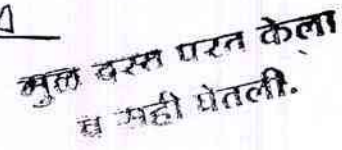 मुल दस्त परत केला
व सही घेतली.